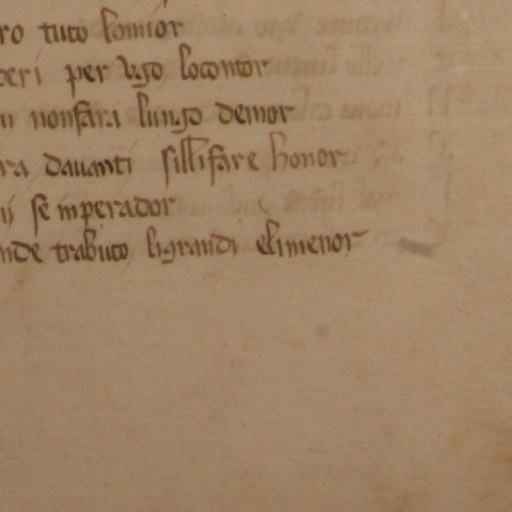 ro tuto lomior
deri per Ugo locontor
ii nonfara lungo demor
ra davanti sillifare honor
ii se inperador
nde trabuto ligrandi elimenor